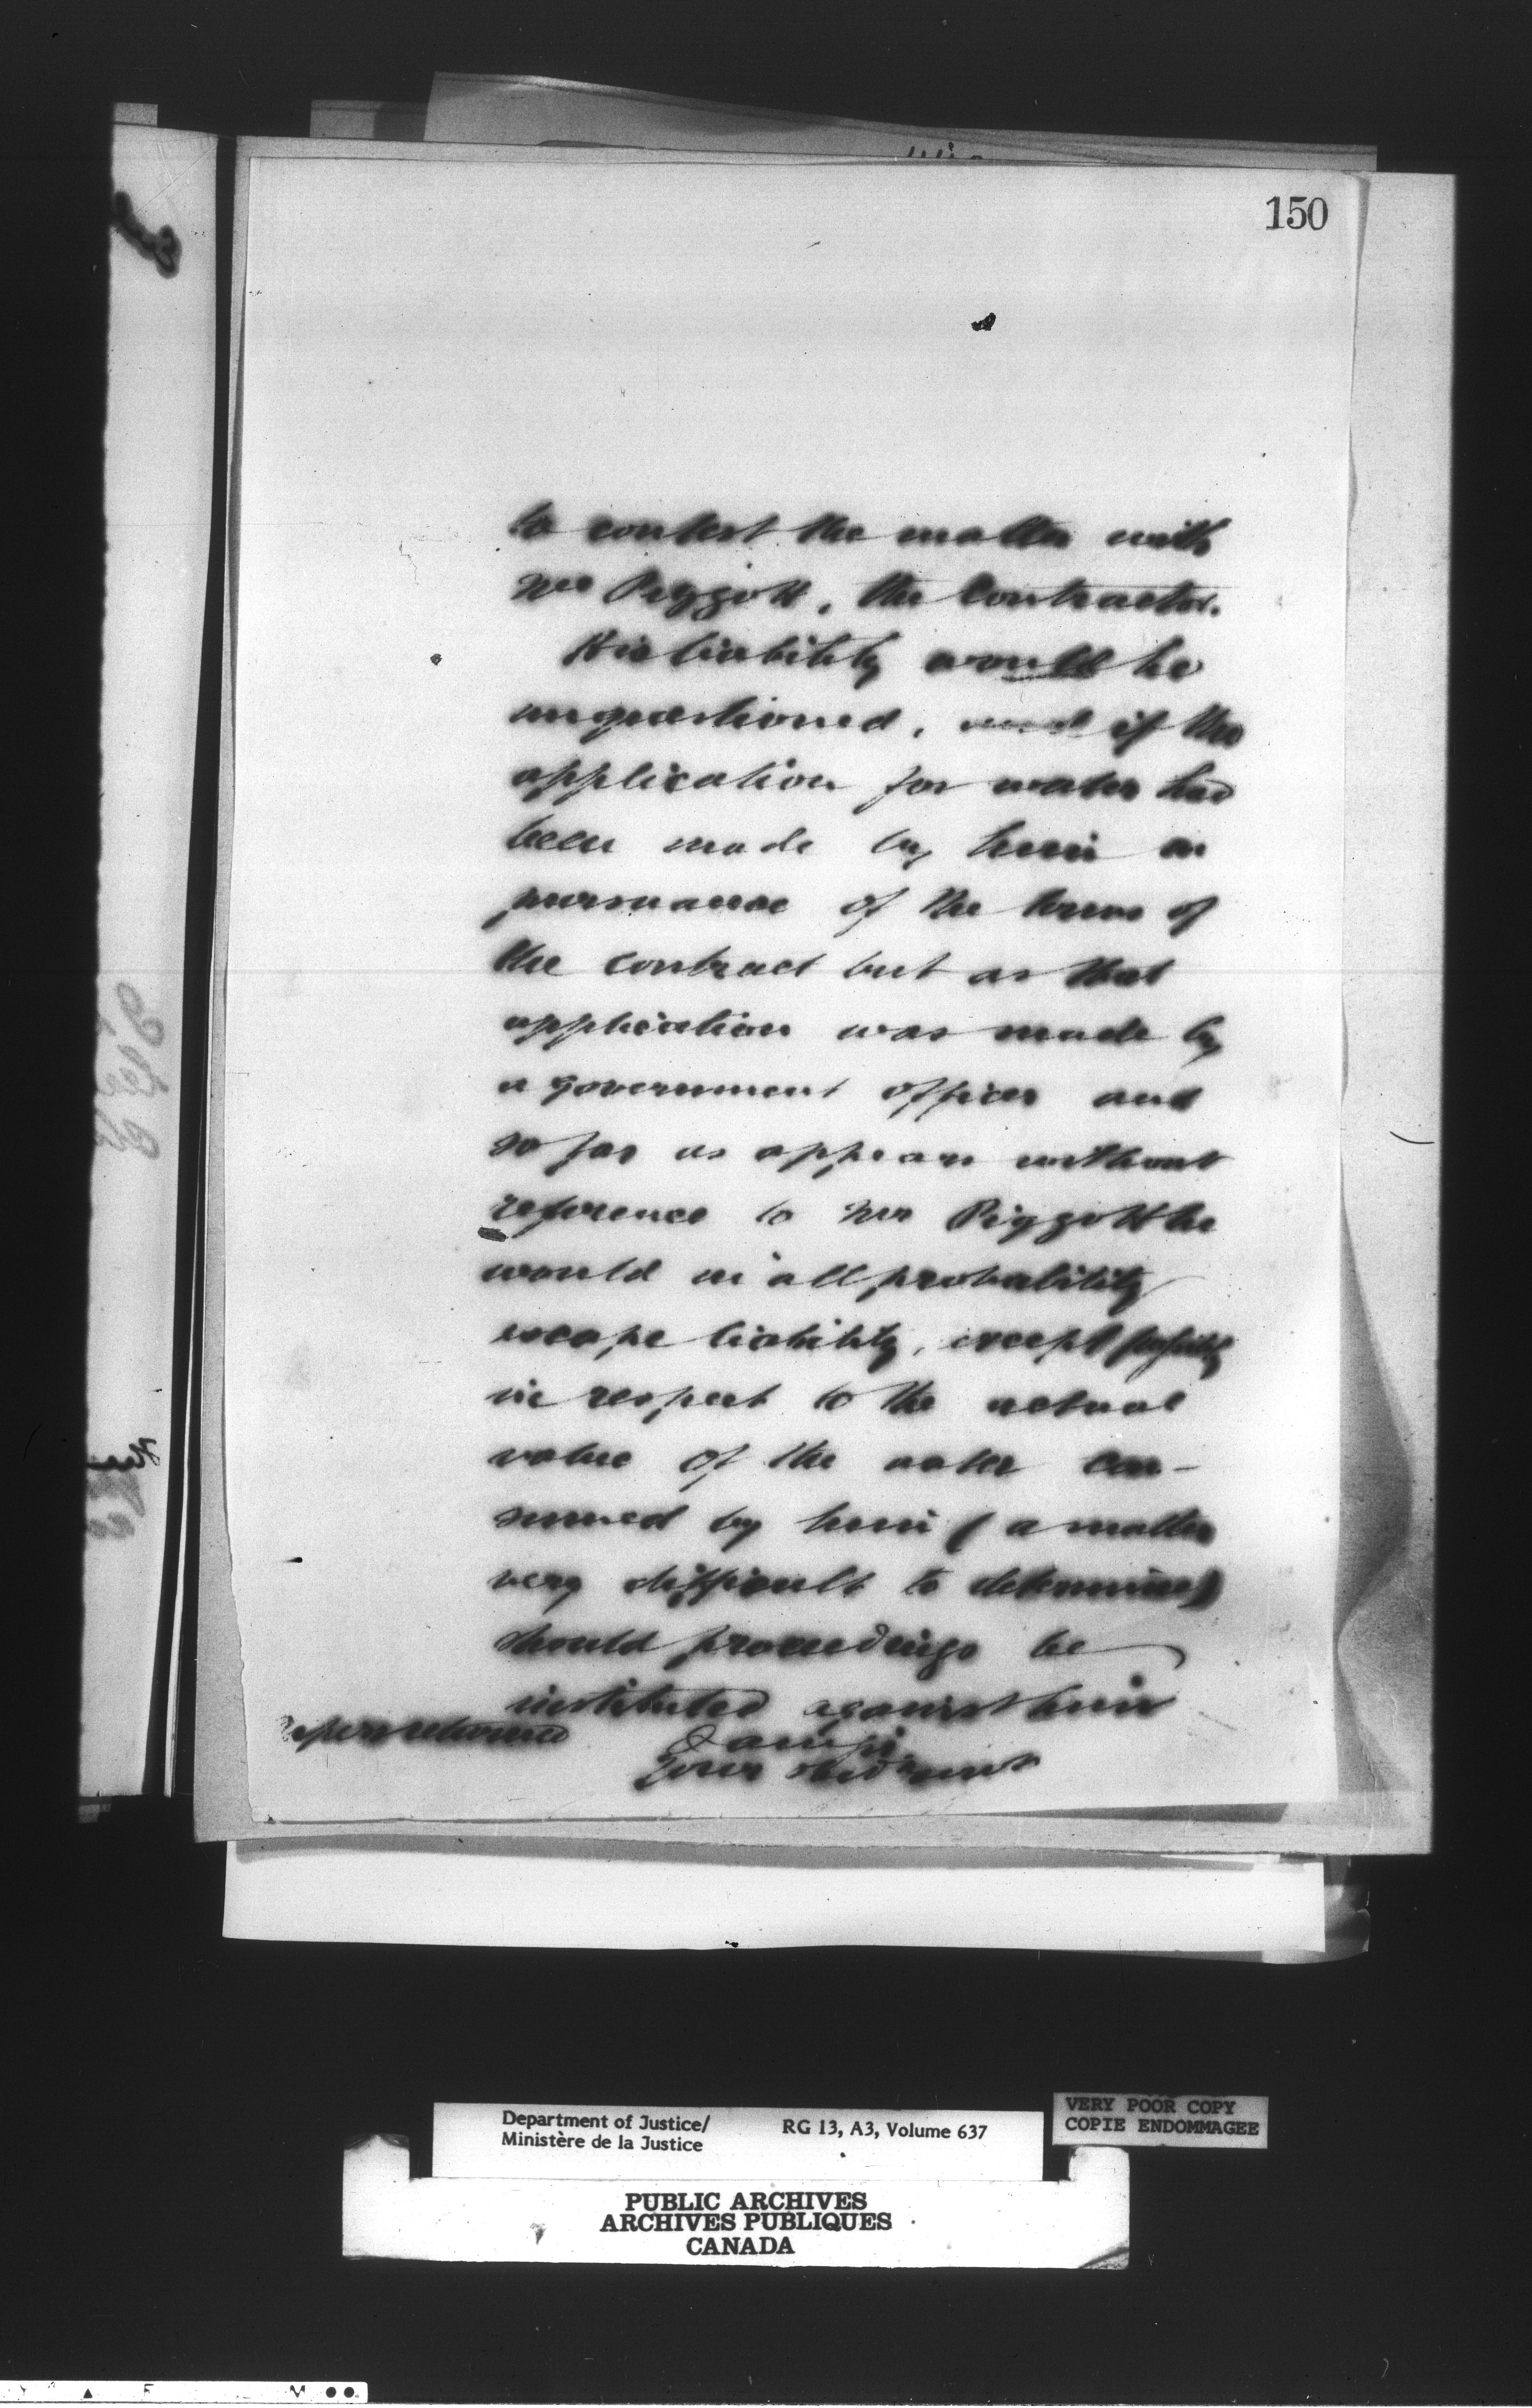 150
to contest the matter with
Mr Piggott, the Contractor.
His liability would be
unquestioned, if the
application for water had
been made by him in
pursuance of the terms of
the contract but as that
application was made by
a government officer and
so far as appears without
reference to Mr Piggott he
would in all probability
escape liability, except possibly
in respect to the actual
value of the water con-
sumed by him (a matter
very difficult to determine)
should proceedings be
instituted against him
Papers returned
I am Sir
Your obt servant
Department of Justice/ RG 13, A3, Volume 637
Ministère de la Justice
VERY POOR COPY
COPIE ENDOMMAGEE
PUBLIC ARCHIVES
ARCHIVES PUBLIQUES
CANADA